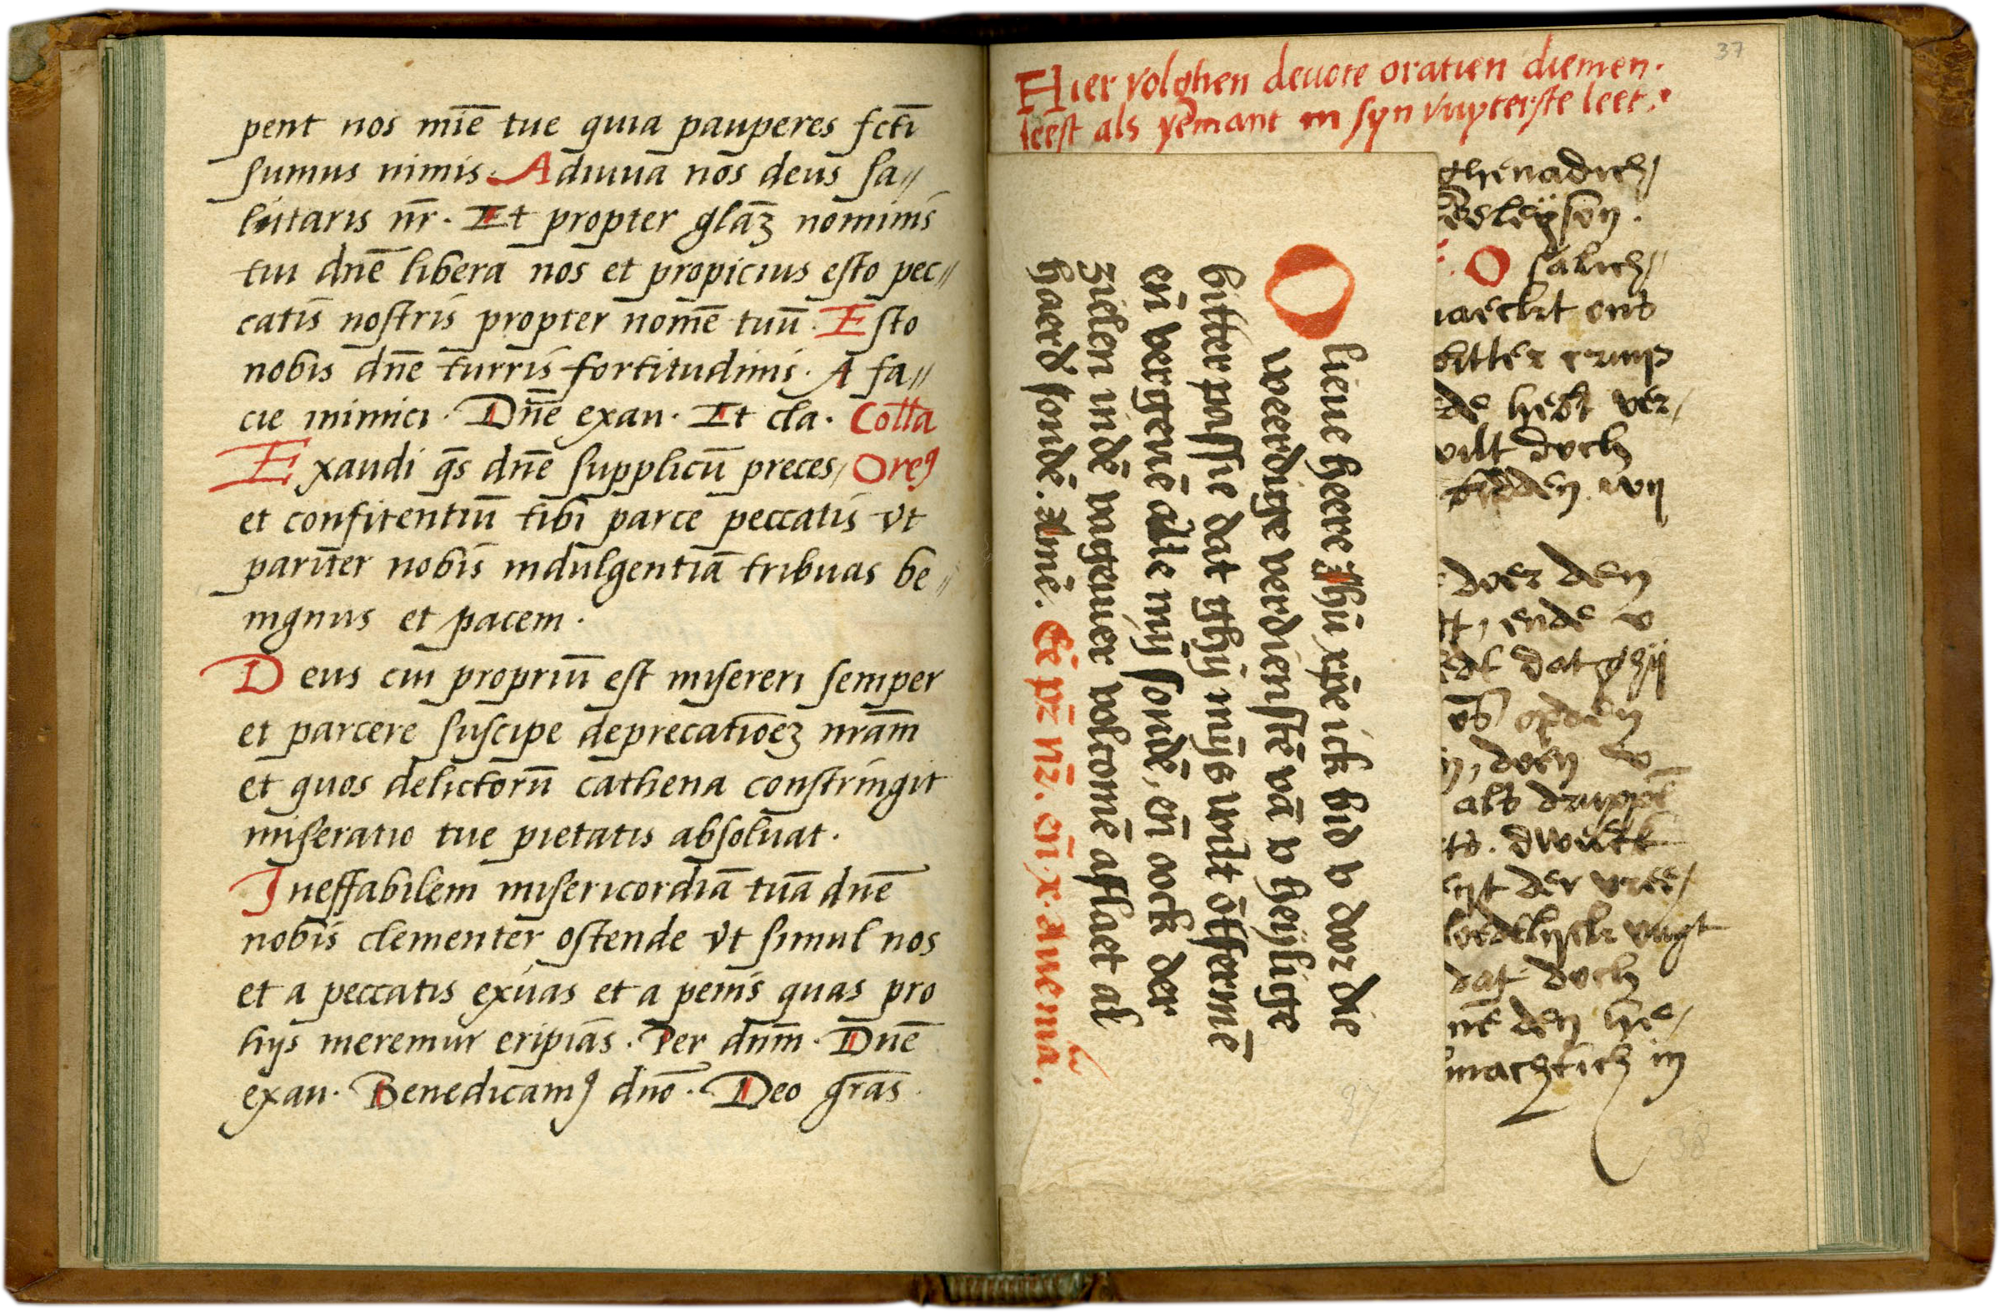 pent nos mīe tue quia pauperes fcti
sumus nimis. Adiuua nos deus sa//
lutaris nr̄. Et propter glaꝫ nominis
tui dnē libera nos et propicius esto pec//
catis nostris propter nomē tuū. Esto
nobis dnē turris fortitudinis. A fa//
cie inimici. Dnē exau. Et cla. Colla
Exaudi qs̄ dnē supplicū preces/ Oreꝰ
et confitentiū tibi parce peccatis vt
parit̄er nobis indulgentiā tribuas be//
nignus et pacem.
Deus cui propriū est misereri semper
et parcere suscipe deprecatioēꝫ nrām
et quos delictorū cathena constringit
miseratio tue pietatis absoluat.
Ineffabilem misericordiā tuā dnē
nobis clementer ostende vt simul nos
et a peccatis exuas et a penis quas pro
hijs meremur eripias. Per dnm̄. Dnē
exau. Benedicamꝰ dnō. Deo grās
37
Hier volghen deuote oratien diemen.
leest als yemant in syn vuyterste leet.
O lieue heere Jhū xp̄e ick bid v doer die
weerdige verdienstē vā v heijlige
bitter passie dat ghij mijs wilt ōtfermē
eñ vergeuē alle mijn sondē, eñ oock der
zielen indē vageuier volcomē aflaet al
haerd sondē. Amē. Eē pr̄ nr̄. eñ x. Aue ma.
37
ghenadich/
eeleyson.
O salich/
naeckt ont
bitter cruys
de hebt ver/
wilt doch
bidden wy
doer den
t, ende v
dat ghij
opden
, doen v
als druppel
to. dwelck
nt der vree/
bedelijck vuyt
dat doch
nē den hie/
machtich in
38